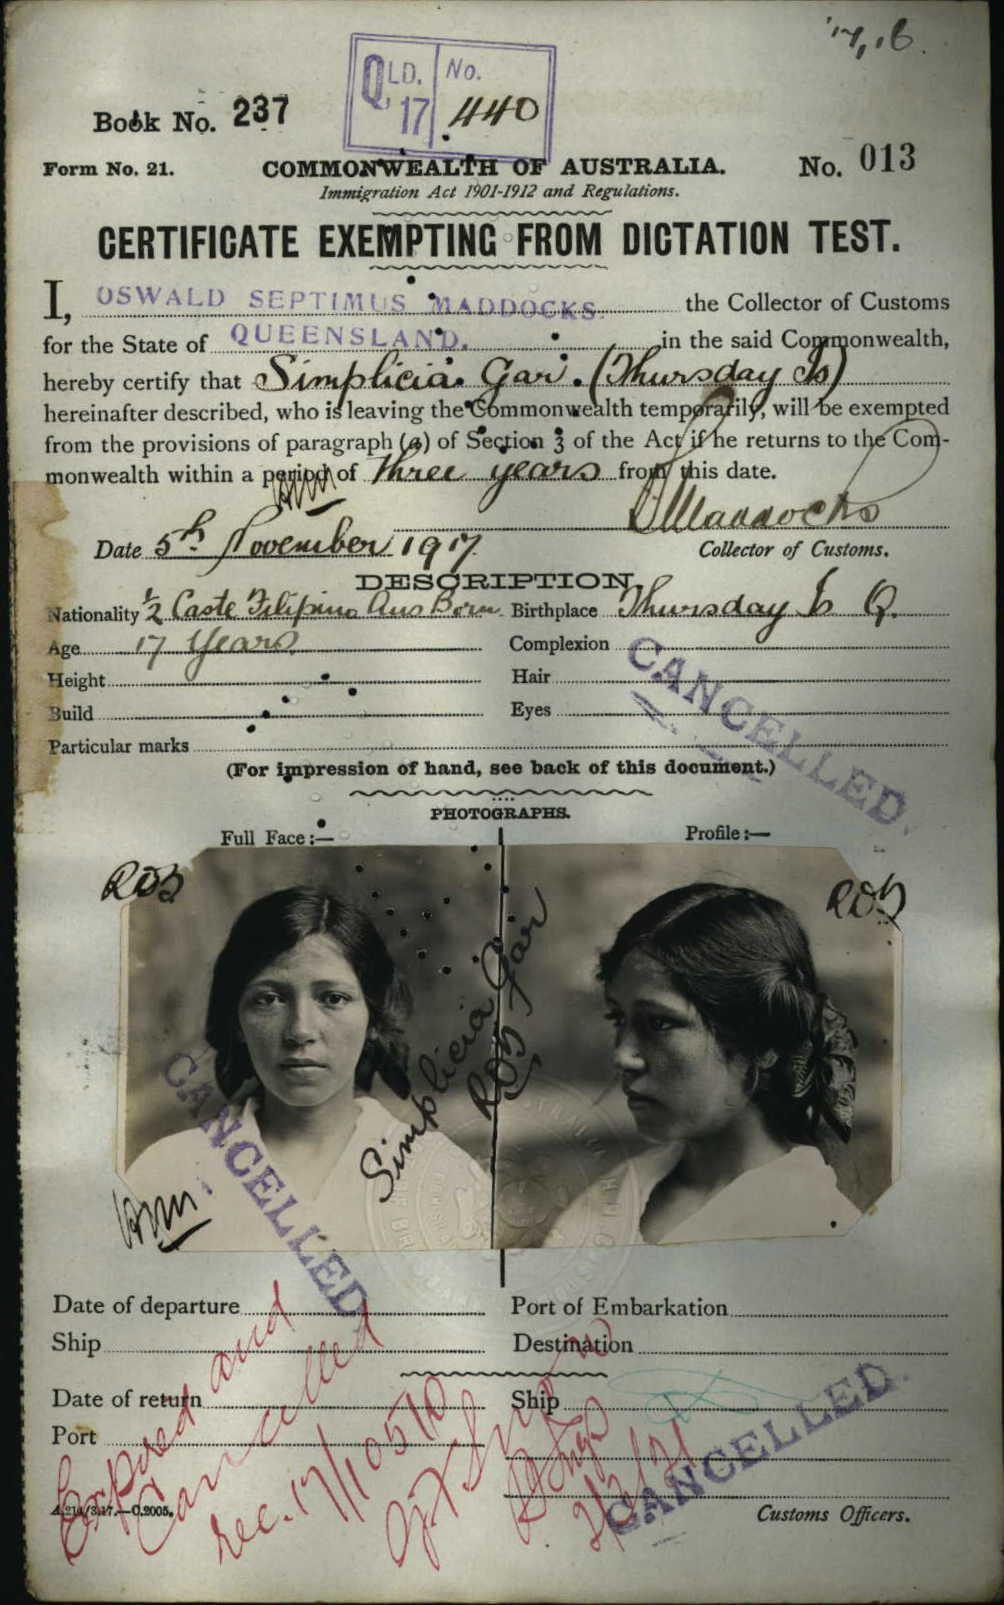 '17,16.
QLD. No.
17 440
Book No. 237
Form No. 21. COMMONWEALTH OF AUSTRALIA. No. 013
Immigration Act 1901-1912 and Regulations.
CERTIFICATE EXEMPTING FROM DICTATION TEST.
I, OSWALD SEPTIMUS MADDOCKS. the Collector of Customs
for the State of QUEENSLAND. in the said Commonwealth,
hereby certify that Simplicia Gar. (Thursday Is)
hereinafter described, who is leaving the Commonwealth temporarily, will be exempted
from the provisions of paragraph (a) of Section 3 of the Act if he returns to the Com-
monwealth within a period of three years from this date.
Maddocks
Date 5th November 1917. Collector of Customs.
DESCRIPTION.
Nationality ½ Caste Filipino Aus Born Birthplace Thursday Is Q.
Age 17 Years. Complexion
Height Hair
Build Eyes
Particular marks
CANCELLED.
(For impression of hand, see back of this document.)
PHOTOGRAPHS.
Full Face:— Profile:—
Simplicia Gar
CANCELLED
Date of departure Port of Embarkation
Ship Destination
Date of return Ship
Port
Expired and
Cancelled
CANCELLED.
A.214/3.17.—C.2005. Customs Officers.